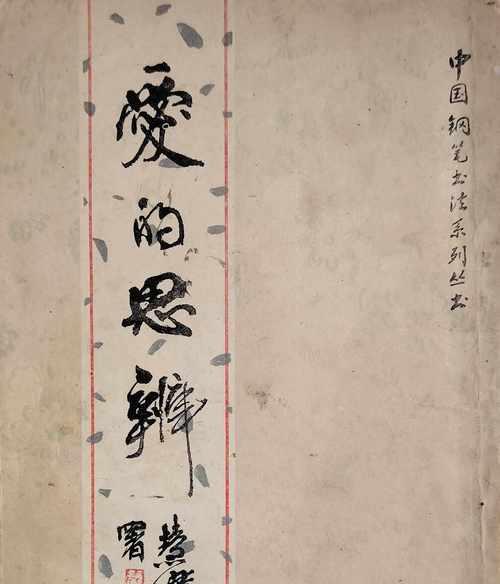 中国钢笔书法系列丛书
爱的思辨
署